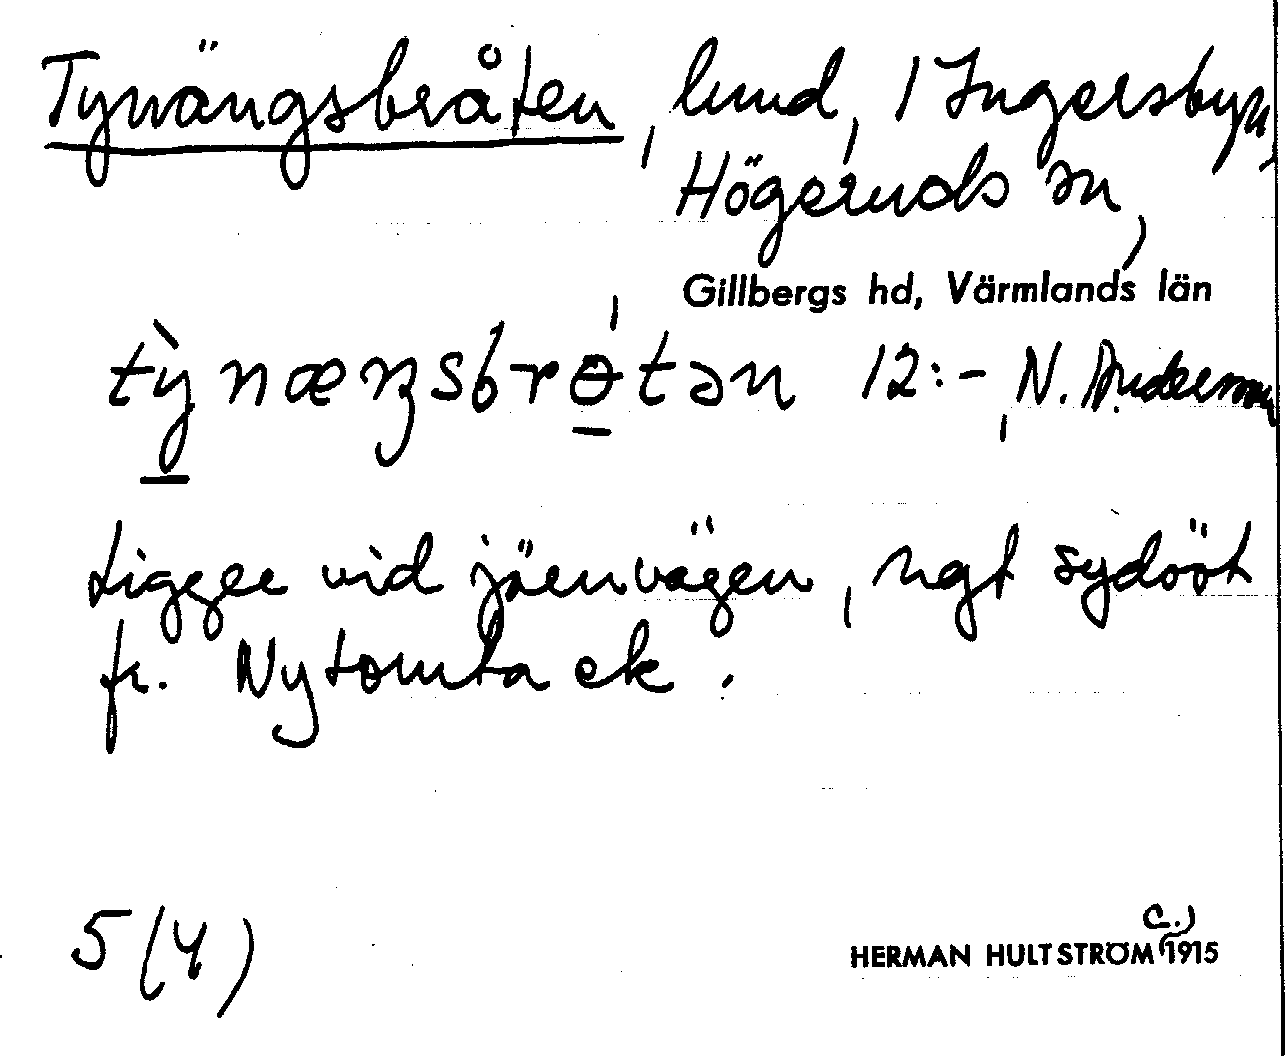 Tynängsbråten, lund, 1 Ingersbyn,
Högeruds sn,
Gillbergs hd, Värmlands län
tỳnæŋsbrɵ́tən 12:-, N. Anderson
Ligger vid järnvägen, ngt sydöst
fr. Nytomta ek.
5 (4)
HERMAN HULTSTRÖM (c.) 1915